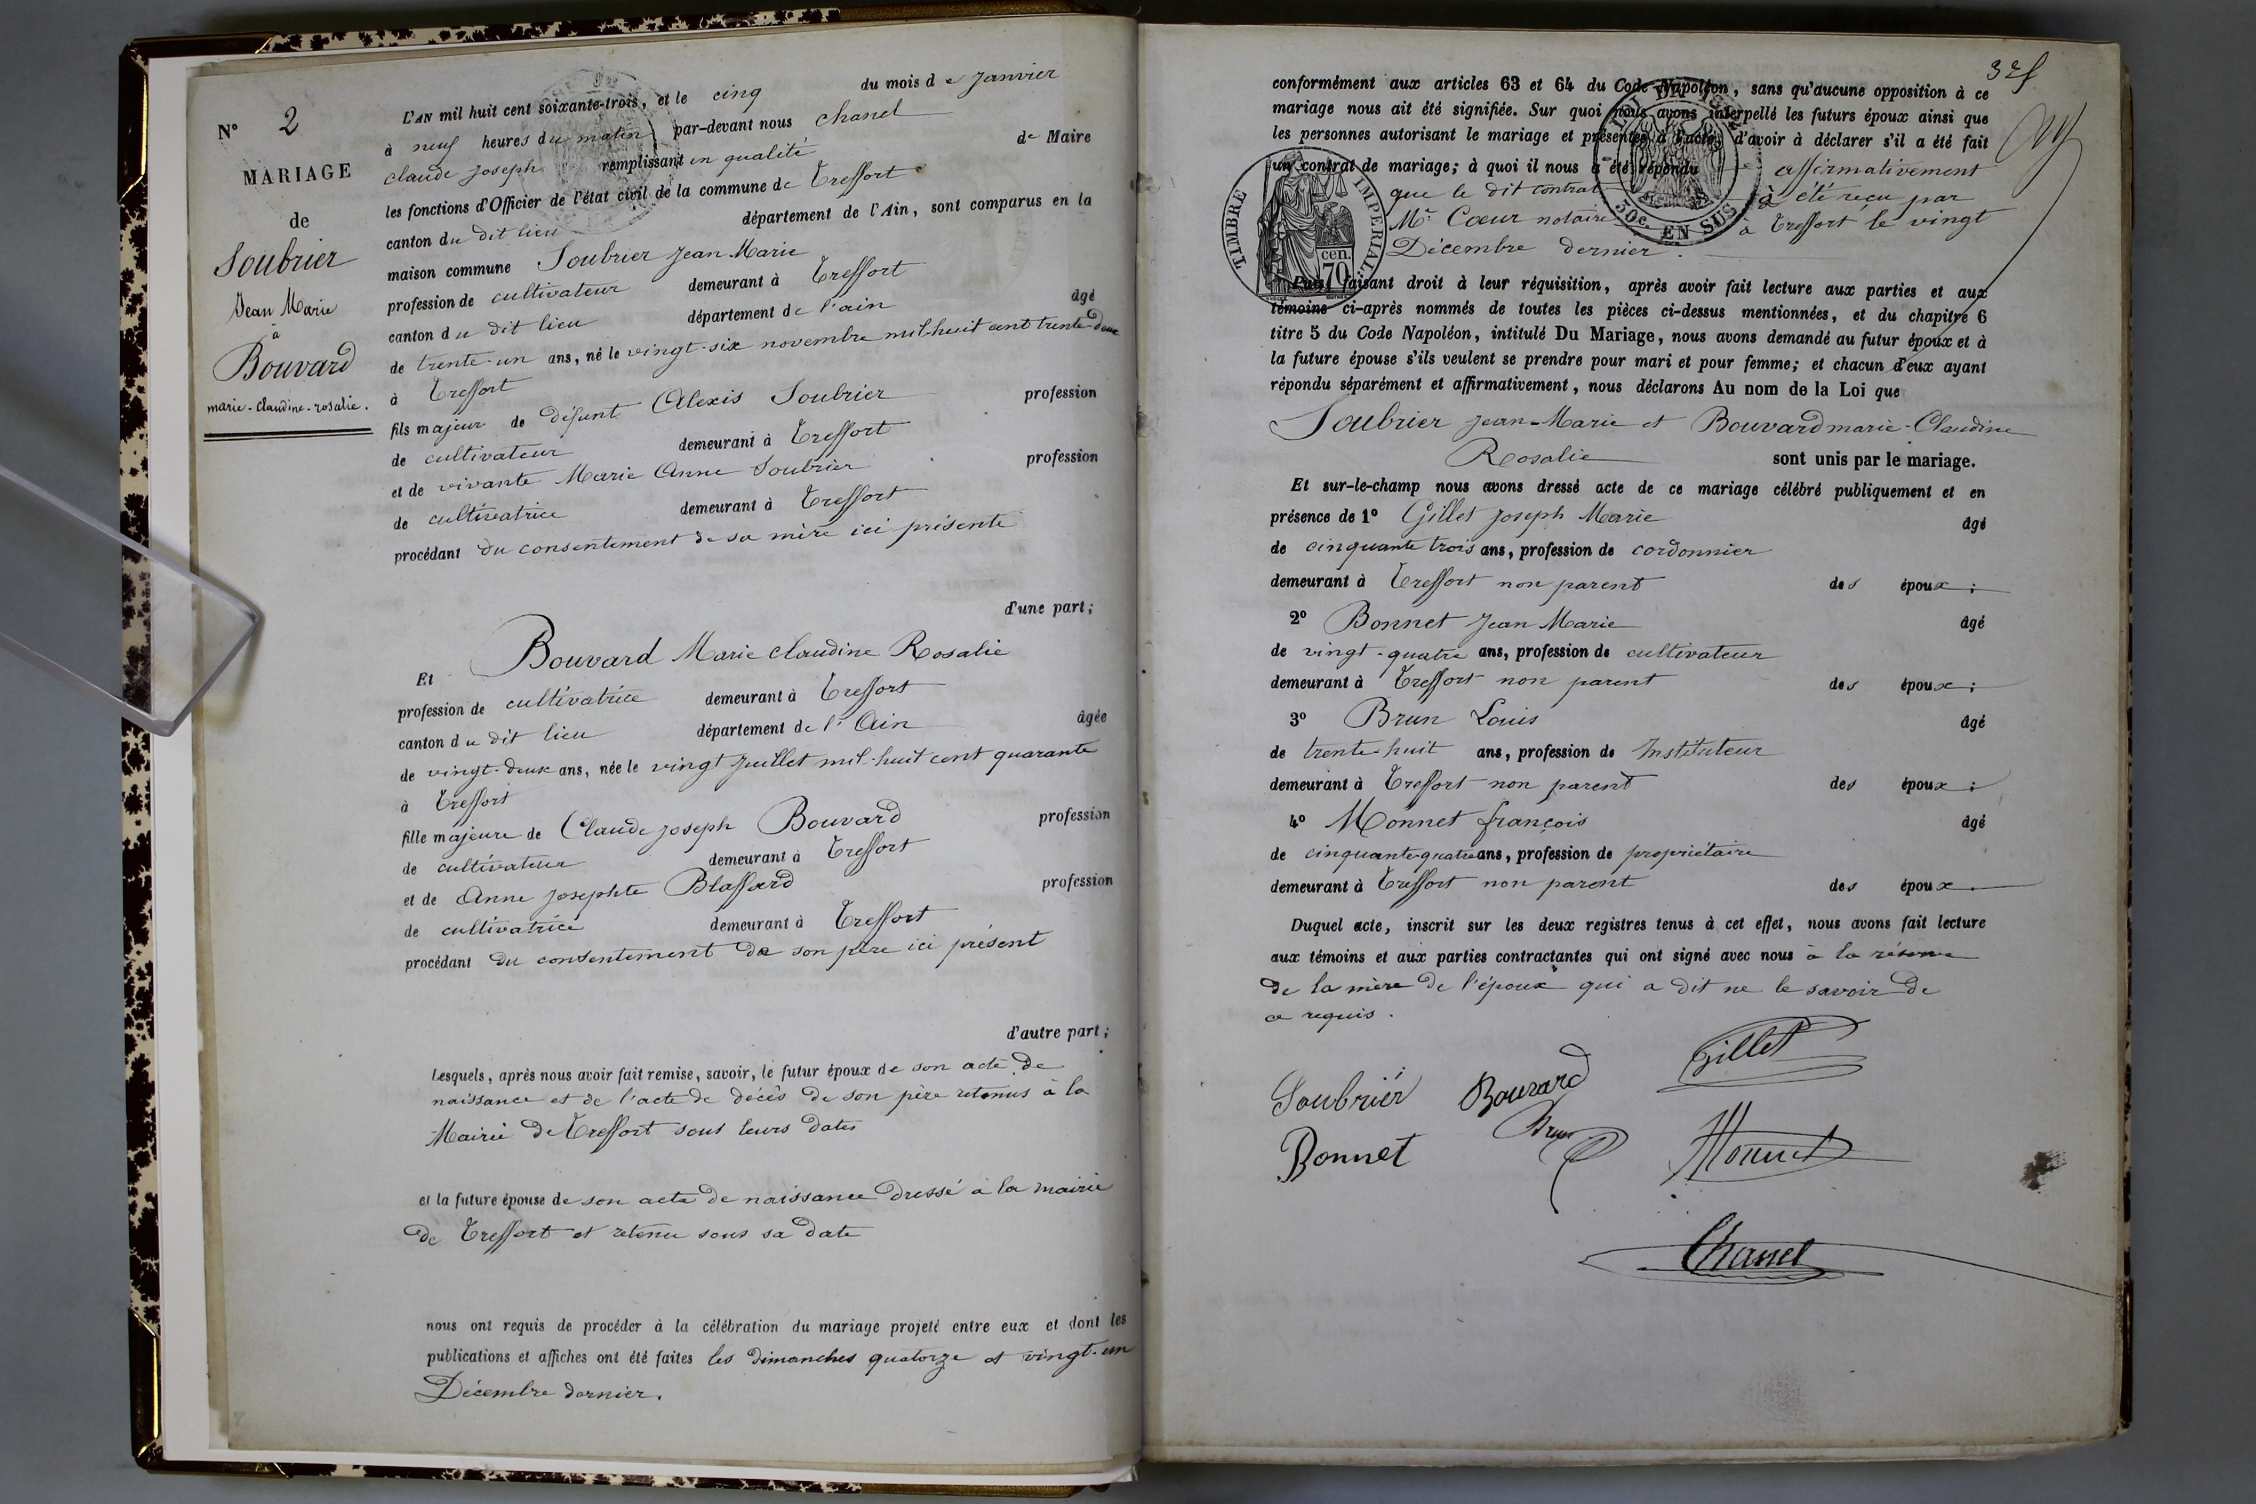 N° 2
MARIAGE
de
Soubrier
Jean Marie
à
Bouvard
marie-claudine-rosalie.
L'AN mil huit cent soixante-trois, et le cinq du mois de Janvier
à neuf heures du matin par-devant nous Chanel
claude Joseph remplissant en qualité de Maire
les fonctions d'Officier de l'état civil de la commune de Treffort
canton du dit lieu département de l'Ain, sont comparus en la
maison commune Soubrier Jean Marie
profession de cultivateur demeurant à Treffort
canton du dit lieu département de l'ain âgé
de trente-un ans, né le vingt-six novembre mil-huit cent trente-deux
à Treffort
fils majeur de défunt Alexis Soubrier profession
de cultivateur demeurant à Treffort
et de vivante Marie Anne Soubrier profession
de cultivatrice demeurant à Treffort
procédant du consentement de sa mère ici présente
d'une part;
Et Bouvard Marie Claudine Rosalie
profession de cultivatrice demeurant à Treffort
canton du dit lieu département de l'Ain âgée
de vingt-deux ans, née le vingt Juillet mil-huit cent quarante
à Treffort
fille majeure de Claude Joseph Bouvard profession
de cultivateur demeurant à Treffort
et de Anne Josephte Blaffard profession
de cultivatrice demeurant à Treffort
procédant du consentement de son père ici présent
d'autre part;
Lesquels, après nous avoir fait remise, savoir, le futur époux de son acte de
naissance et de l'acte de décès de son père retenus à la
Mairie de Treffort sous leurs dates
et la future épouse de son acte de naissance dressé à la mairie
de Treffort et retenu sous sa date
nous ont requis de procéder à la célébration du mariage projeté entre eux et dont les
publications et affiches ont été faites les dimanches quatorze et vingt-un
Décembre dernier.
conformément aux articles 63 et 64 du Code Napoléon, sans qu'aucune opposition à ce
mariage nous ait été signifiée. Sur quoi nous avons interpellé les futurs époux ainsi que
les personnes autorisant le mariage et présentes à l'acte, d'avoir à déclarer s'il a été fait
un contrat de mariage; à quoi il nous a été répondu affirmativement
que le dit contrat à été reçu par
Mr. Cœur notaire à Treffort le vingt
Décembre dernier.
TIMBRE IMPÉRIAL
cen. 70
50c. EN SUS
Puis, faisant droit à leur réquisition, après avoir fait lecture aux parties et aux
témoins ci-après nommés de toutes les pièces ci-dessus mentionnées, et du chapitre 6
titre 5 du Code Napoléon, intitulé Du Mariage, nous avons demandé au futur époux et à
la future épouse s'ils veulent se prendre pour mari et pour femme; et chacun d'eux ayant
répondu séparément et affirmativement, nous déclarons Au nom de la Loi que
Soubrier Jean-Marie et Bouvard marie-Claudine
Rosalie sont unis par le mariage.
Et sur-le-champ nous avons dressé acte de ce mariage célébré publiquement et en
présence de 1° Gillet Joseph Marie âgé
de cinquante trois ans, profession de cordonnier
demeurant à Treffort non parent des époux;
2° Bonnet Jean Marie âgé
de vingt-quatre ans, profession de cultivateur
demeurant à Treffort non parent des époux;
3° Brun Louis âgé
de trente-huit ans, profession de Instituteur
demeurant à Treffort non parent des époux;
4° Monnet françois âgé
de cinquante-quatre ans, profession de propriétaire
demeurant à Treffort non parent des époux
Duquel acte, inscrit sur les deux registres tenus à cet effet, nous avons fait lecture
aux témoins et aux parties contractantes qui ont signé avec nous à la réserve
de la mère de l'époux qui a dit ne le savoir de
ce requis.
Soubrier Bouvard Gillet
Bonnet Brun Monnet
Chanel